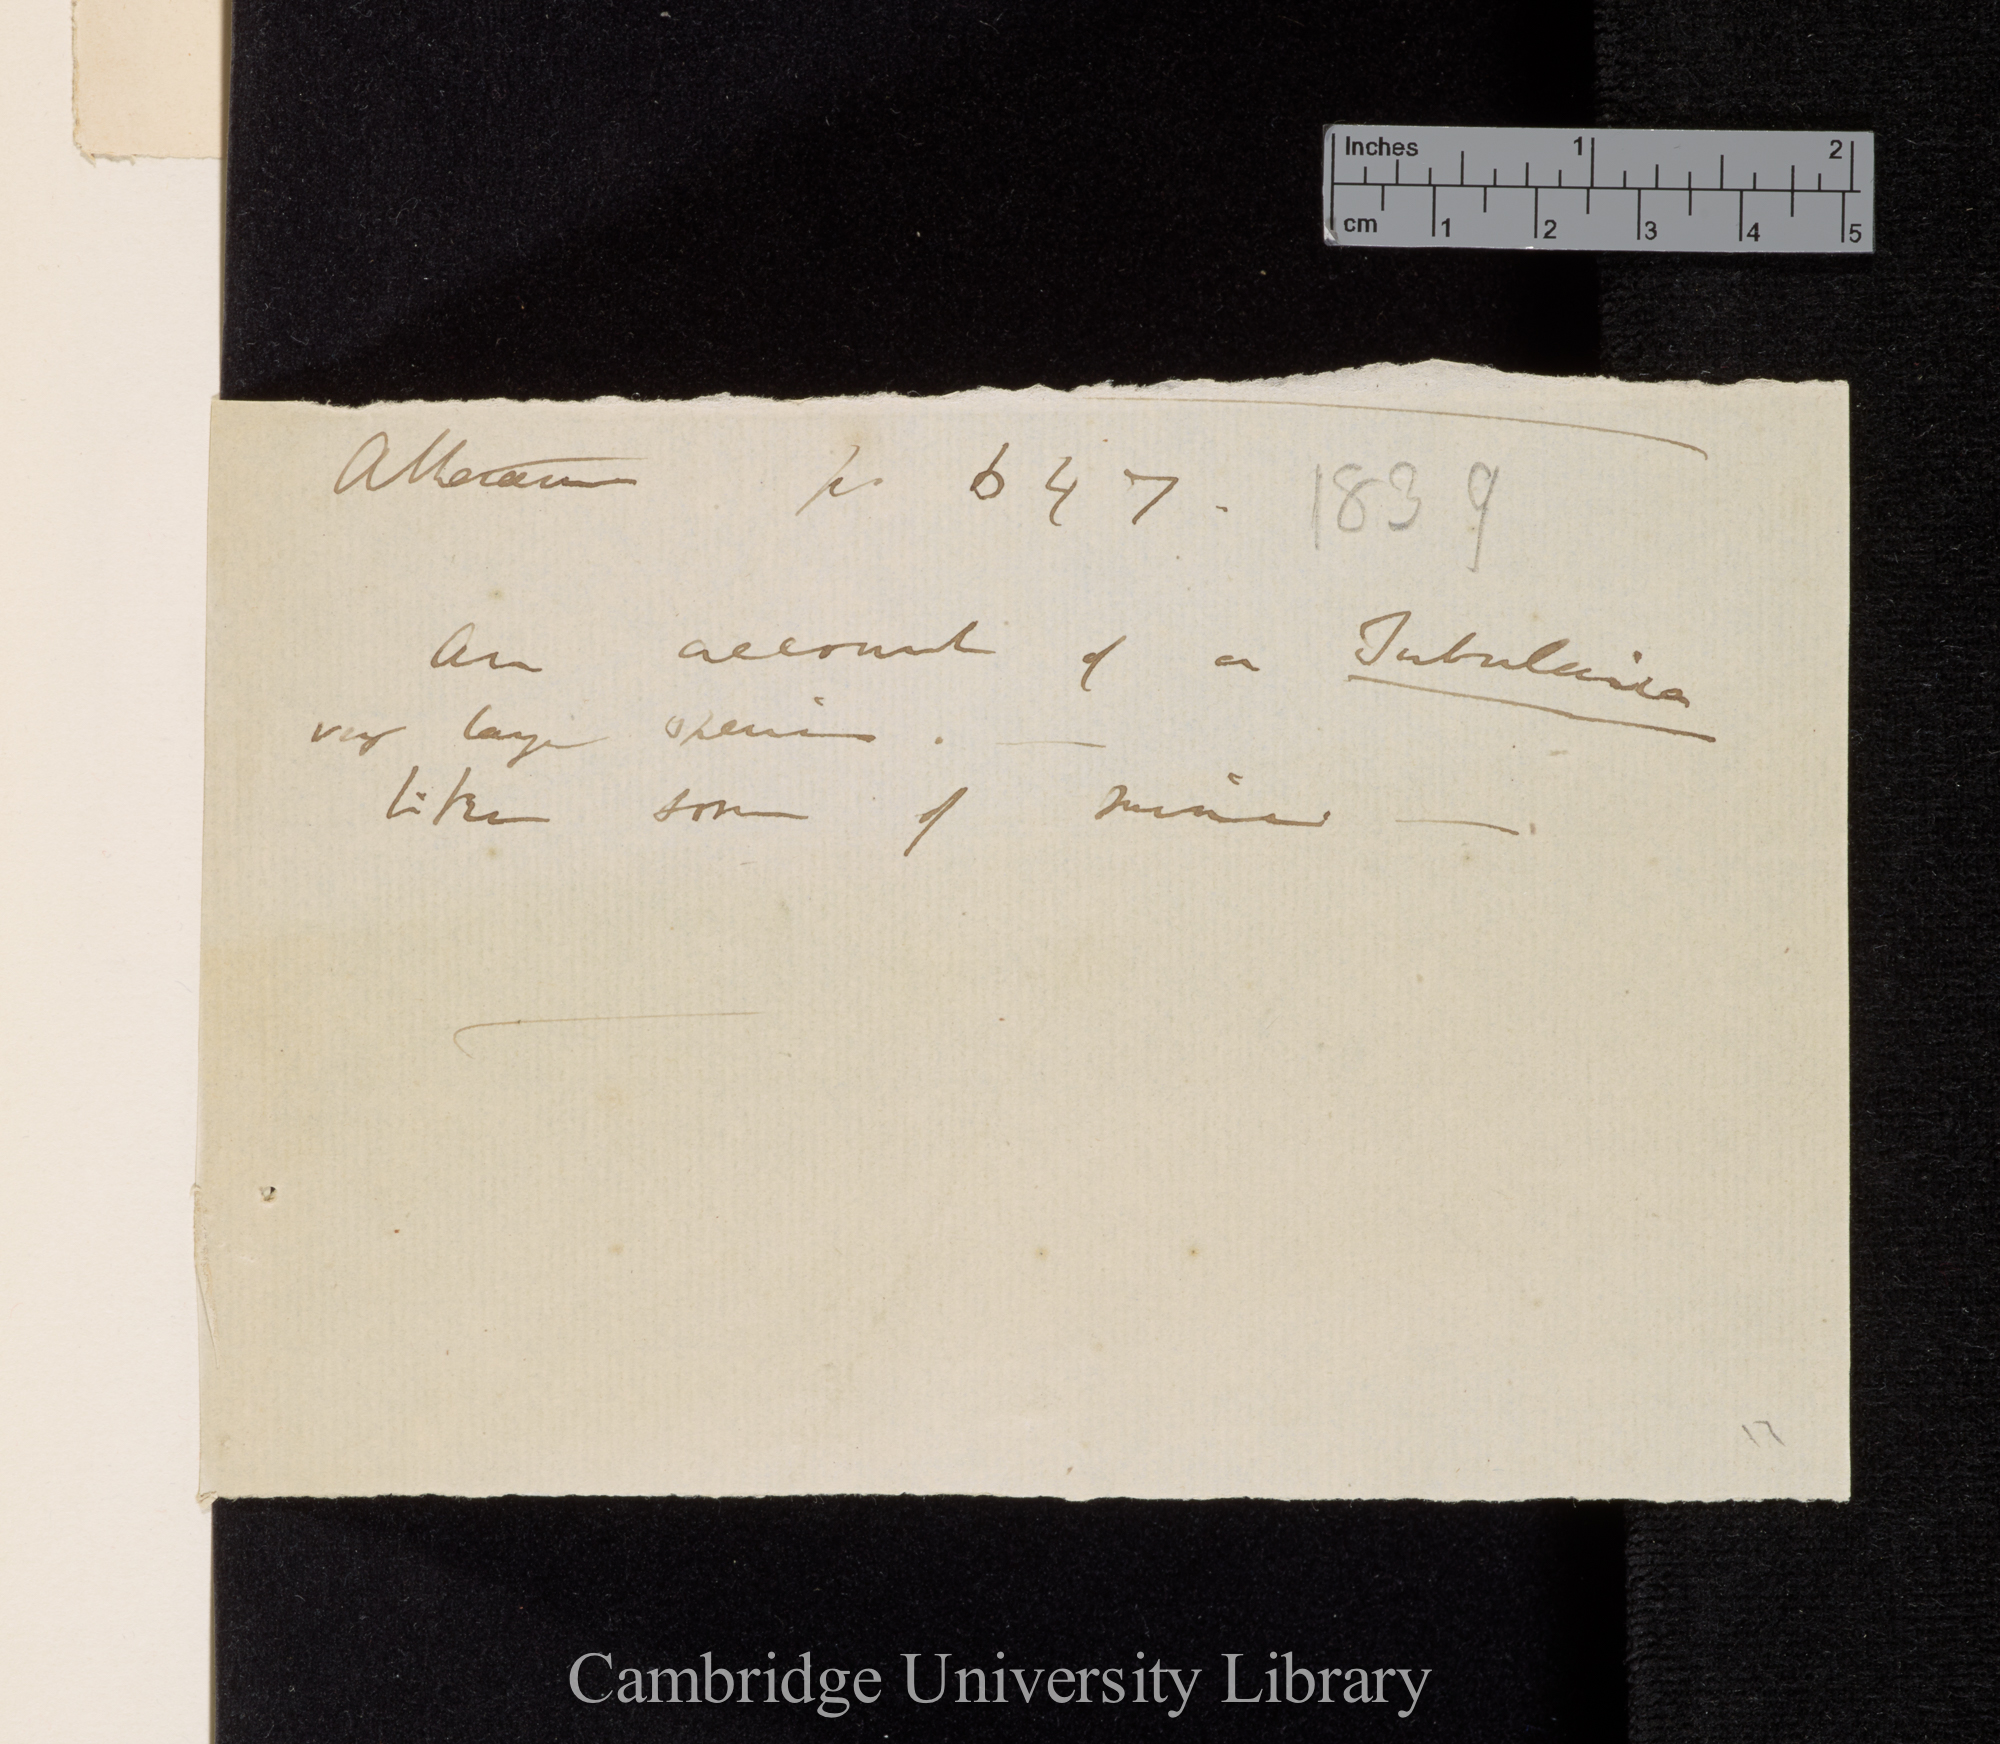 Inches 1 2
cm 1 2 3 4 5
Athenæum p. 647. 1839
An account of a Tubularia
very large species. —
like some of mine —
17
Cambridge University Library